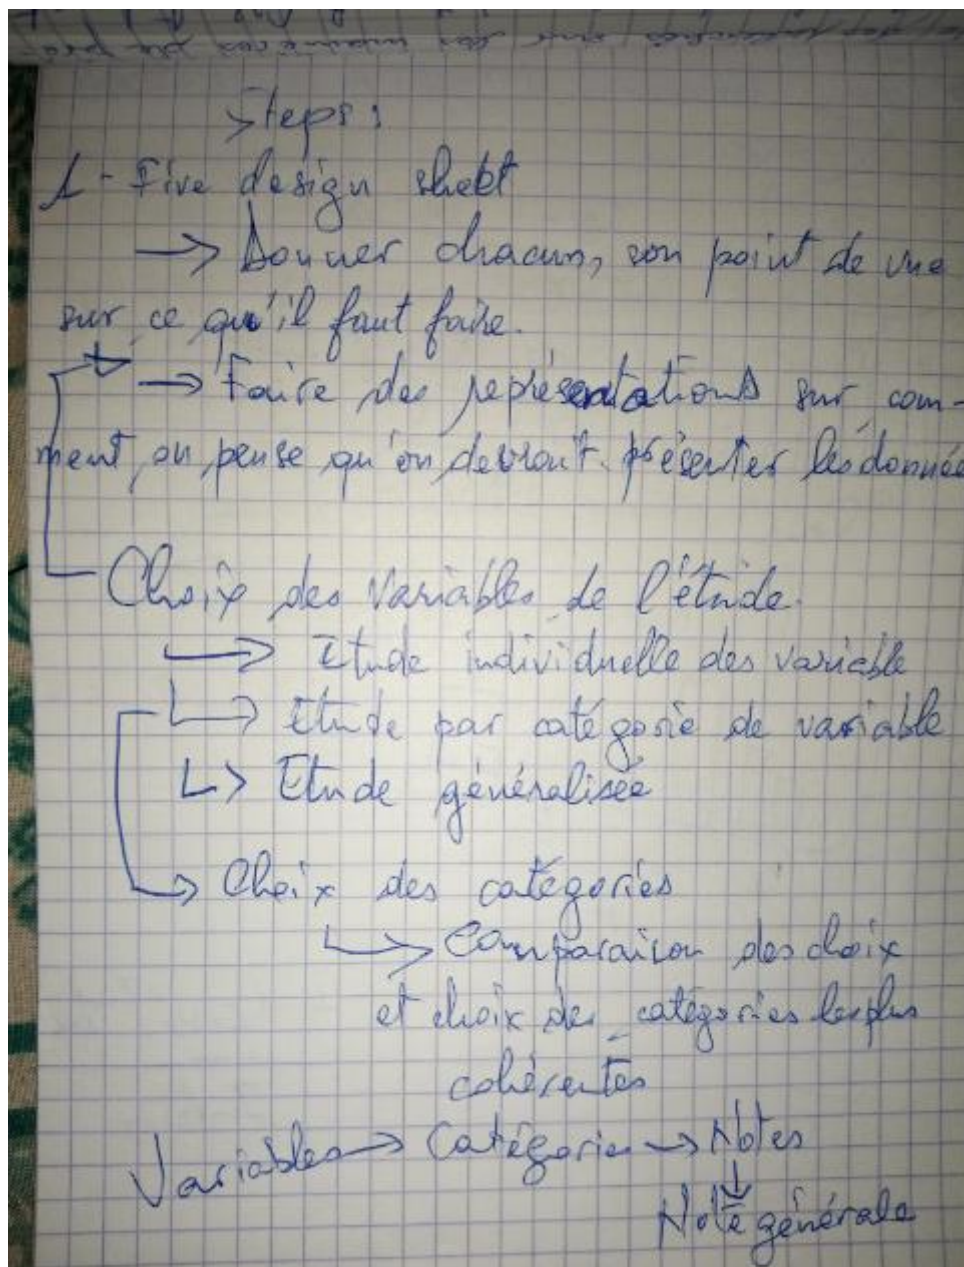 Steps :
1 - Five design sheet
→ Donner chacun, son point de vue
sur ce qu'il faut faire.
→ Faire des représentations sur com-
ment on pense qu'on devrait présenter les donnée
Choix des variables de l'étude.
→ Etude individuelle des variable
→ Etude par catégorie de variable
→ Etude généralisée
→ Choix des catégories
→ Comparaison des choix
et choix des catégories les plus
cohérentes
Variables → Catégories → Notes
↓
Note générale